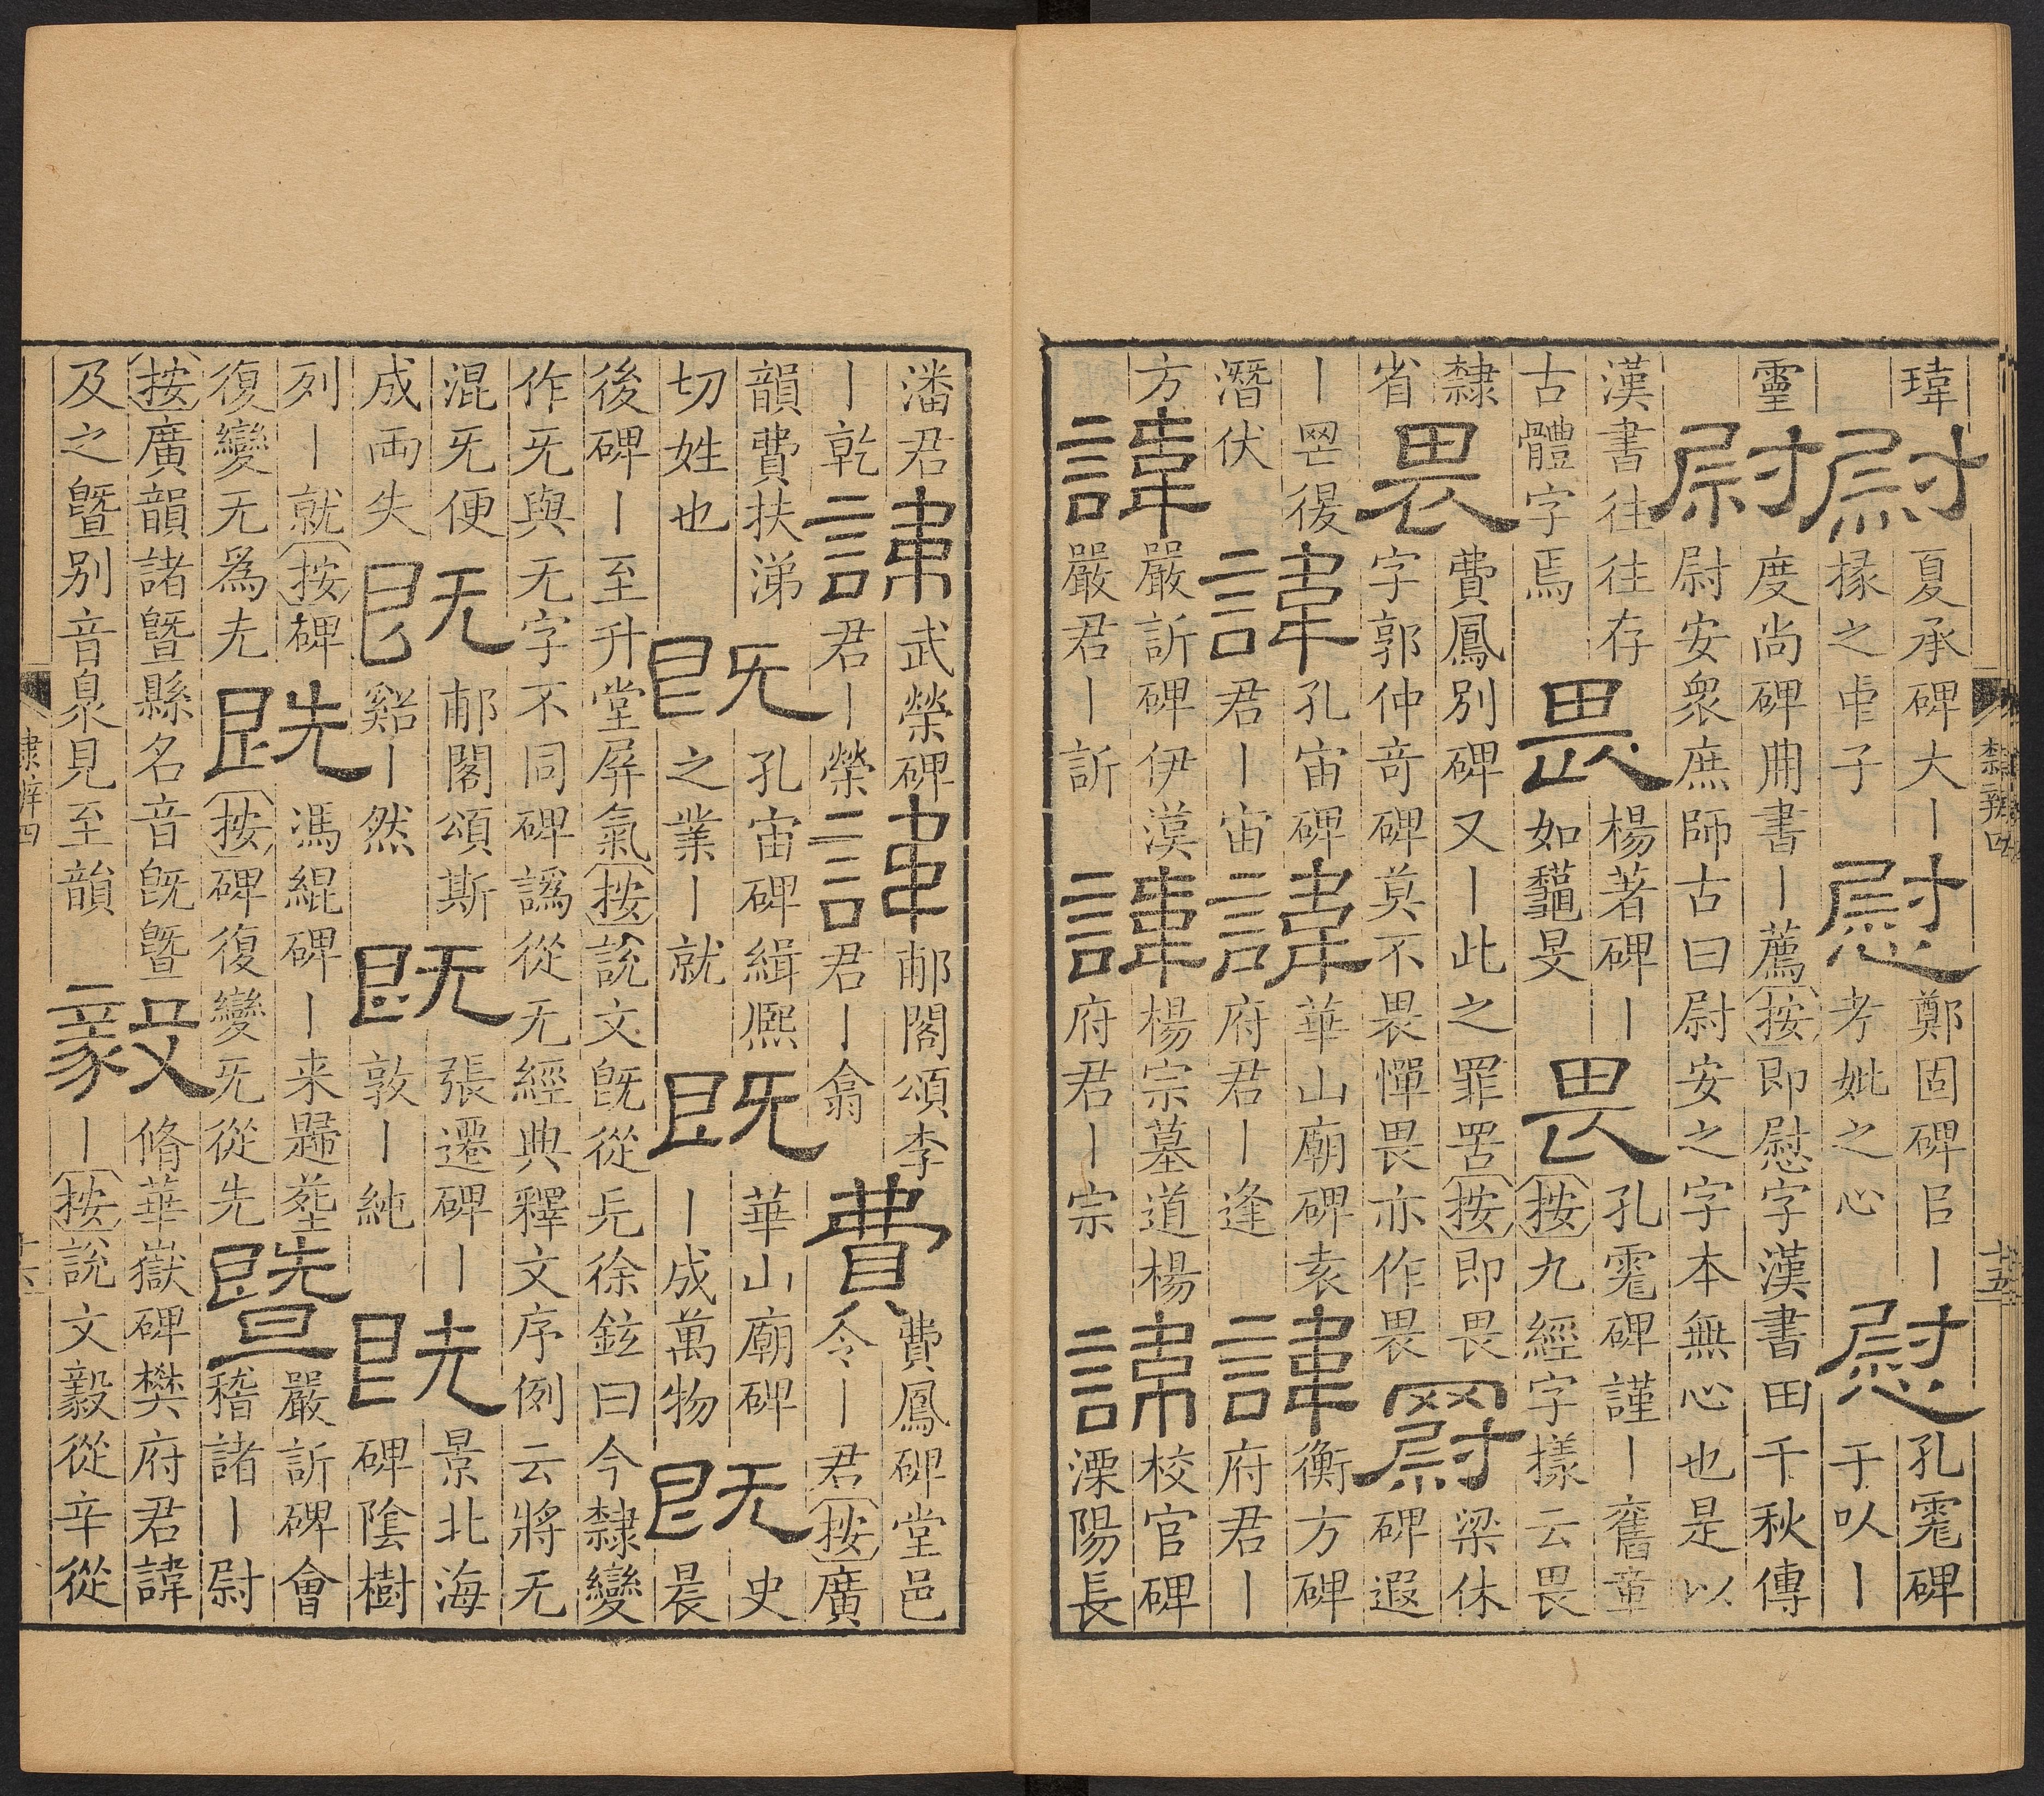 瑋尉夏承碑大丨掾之中子慰鄭固碑㠯丨考妣之心慰孔碑于以丨
靈尉度尚碑冊書丨薦按即慰字漢書田千秋傳尉安衆庶師古曰尉安之字本無心也是以
漢書往往存古體字焉畏楊著碑丨如旻畏孔碑謹丨舊章按九經字樣云畏
隸省畏費鳳別碑又丨此之罪罟按即畏字郭仲奇碑莫不畏憚畏亦作畏罻梁休碑遐
丨罔得潛伏諱孔宙碑君丨宙諱華山廟碑袁府君丨逢諱衡方碑府君丨
方諱嚴訢碑伊漢嚴君丨訢諱楊宗墓道楊府君丨宗諱校官碑溧陽長
隸辨四
十五
潘君丨乾諱武榮碑君丨榮諱郙閣頌李君丨翕費費鳳碑堂邑令丨君按廣
韻費扶涕切姓也既孔宙碑緝熙之業丨就既華山廟碑丨成萬物既史晨
後碑丨至升堂屏氣按說文旣從旡徐鉉曰今隸變作旡與无字不同碑譌從无經典釋文序例云將无
混旡便成兩失既郙閣頌斯谿丨然既張遷碑丨敦丨純既景北海碑陰樹
列丨就按碑復變无爲𠑶既馮緄碑丨来歸葬按碑復變旡從先暨嚴訢碑會稽諸丨尉
按廣韻諸曁縣名音旣曁及之曁別音臮見至韻毅脩華嶽碑樊府君諱丨按說文毅從辛從
隸辨四
十六